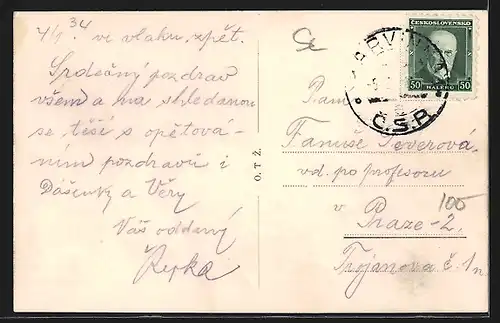 4/1 34 ve vlaku, zpět.
Srdečný pozdrav
všem a na shledanou
se těší s opětová-
ním pozdravů i
Dášenky a Věry
Váš oddaný
Řepka
O. T. Ž.
ČESKOSLOVENSKO
50 HALÉŘŮ 50
Č.S.R.
Paní
Fanuše Severová,
vd. po profesoru
v
Praze-2.
Trojanova č. 1
100